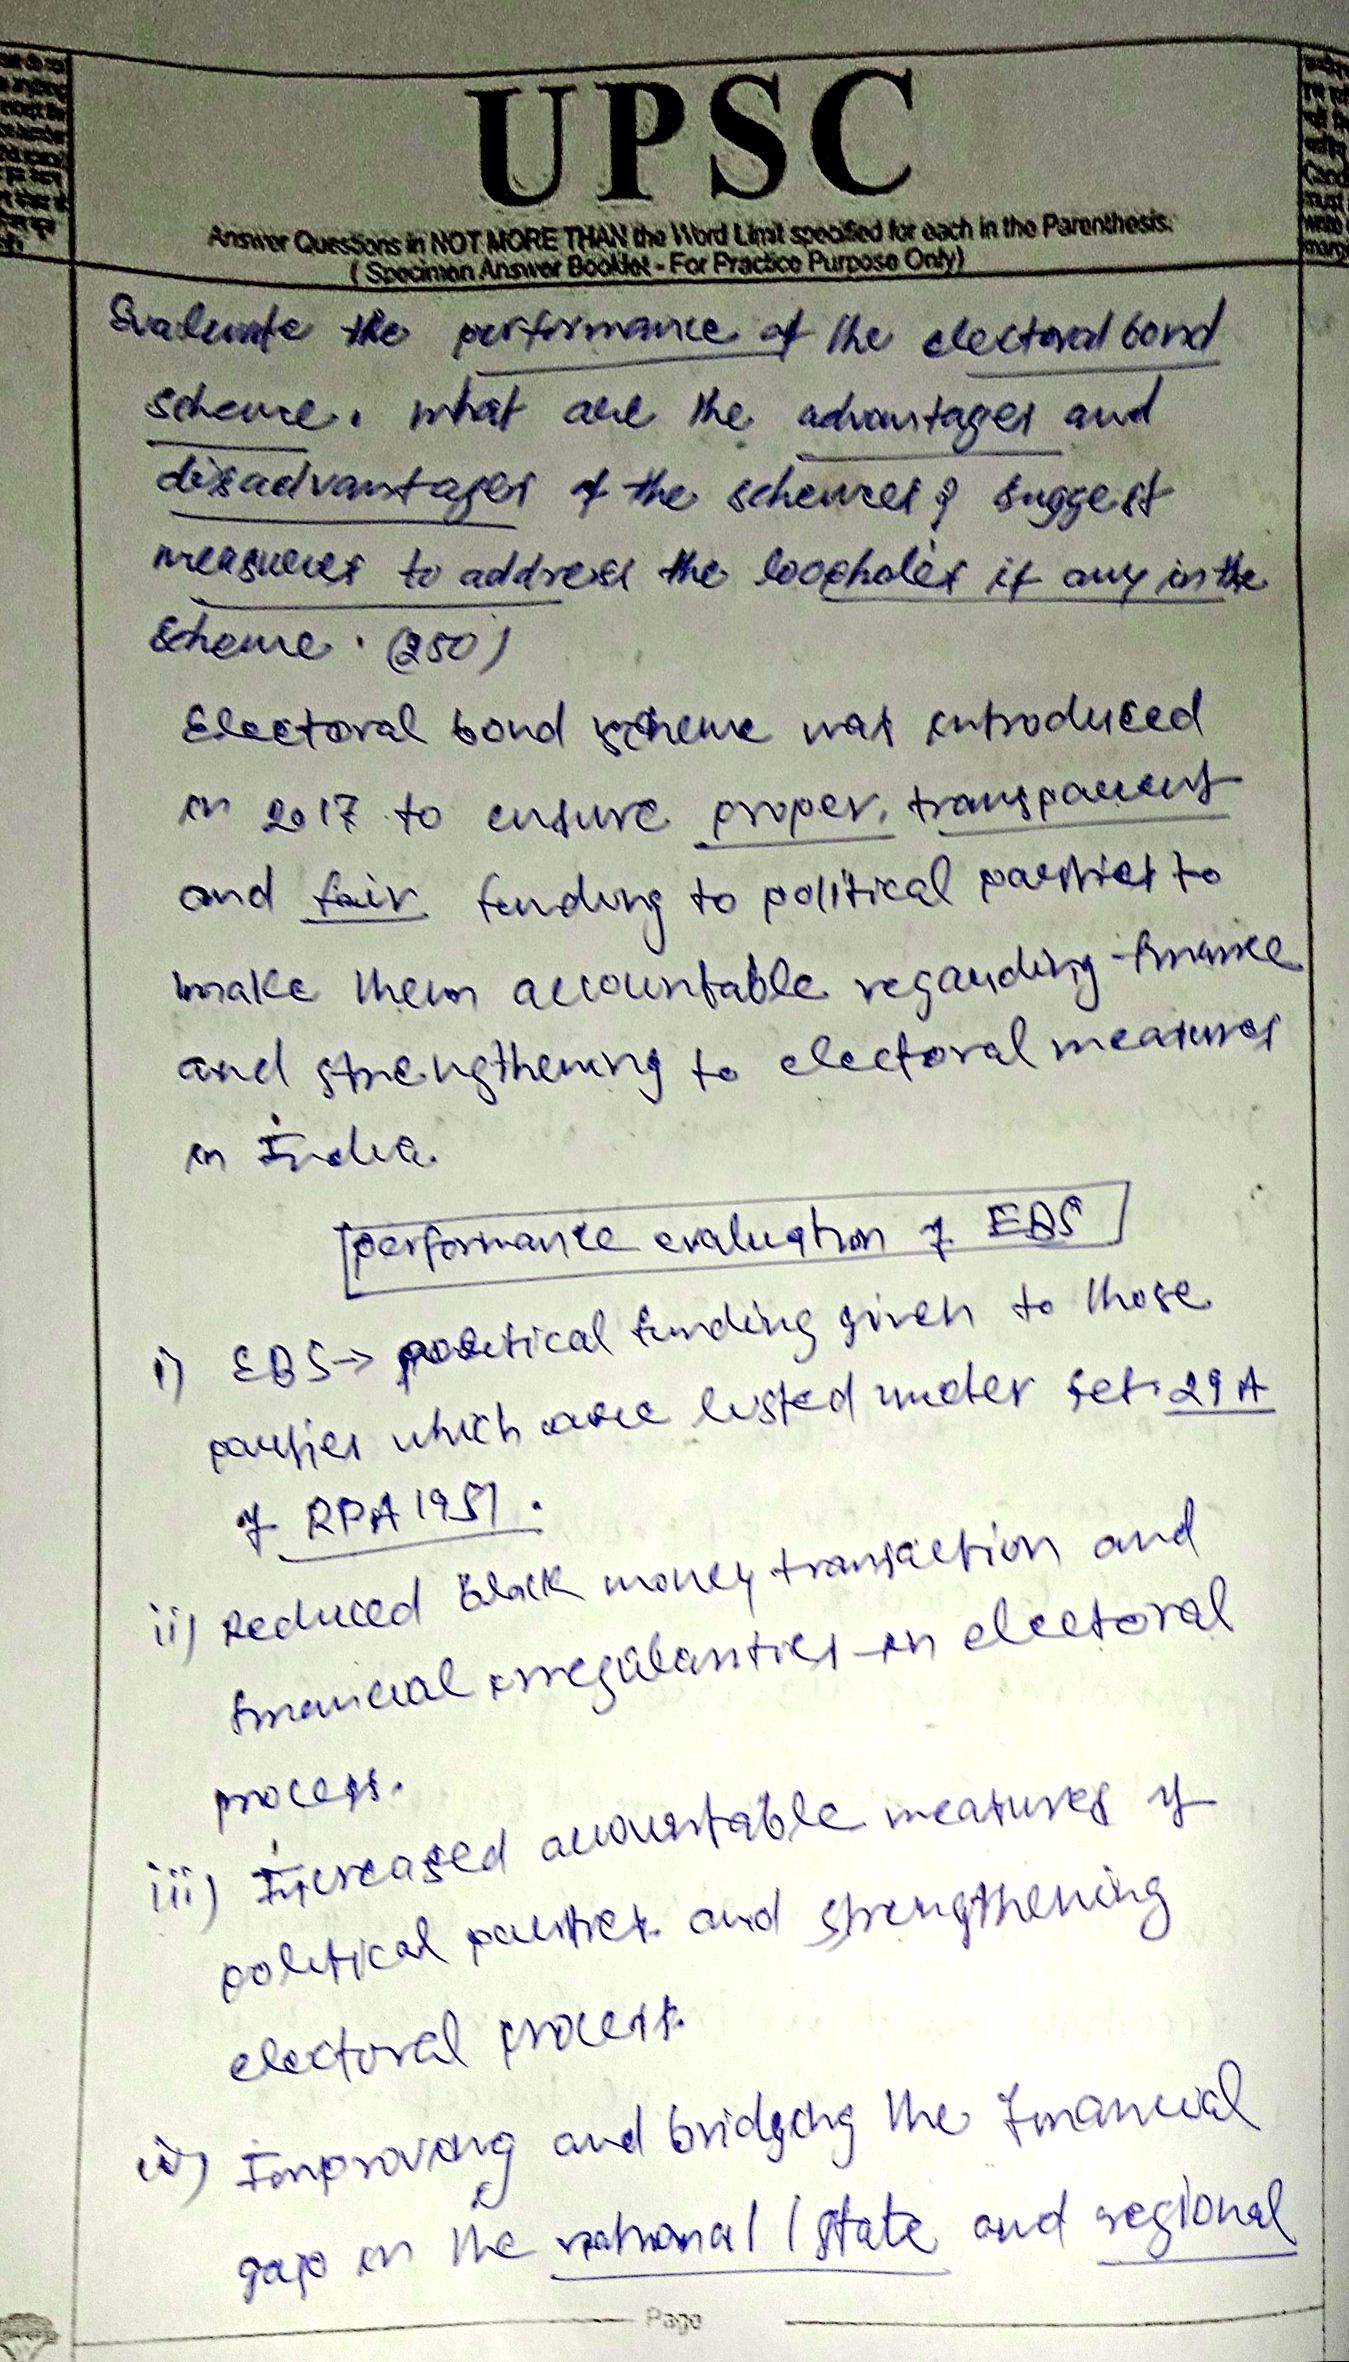 UPSC
Answer Questions in NOT MORE THAN the Word Limit specified for each in the Parenthesis.
( Specimen Answer Booklet - For Practice Purpose Only)
Evaluate the performance of the electoral bond
scheme. What are the advantages and
disadvantages of the schemes & suggest
measures to address the loopholes if any in the
scheme. (250)
Electoral bond scheme was introduced
in 2017 to ensure proper, transparent
and fair funding to political parties to
make them accountable regarding finance
and strengthening to electoral measures
in India.
performance evaluation of EBS
i) EBS → political funding given to those
parties which are listed under sec. 29A
of RPA 1951.
ii) Reduced black money transaction and
financial irregularities in electoral
process.
iii) Increased accountable measures of
political parties and strengthening
electoral process.
iv) Improving and bridging the financial
gap in the national / state and regional
Page